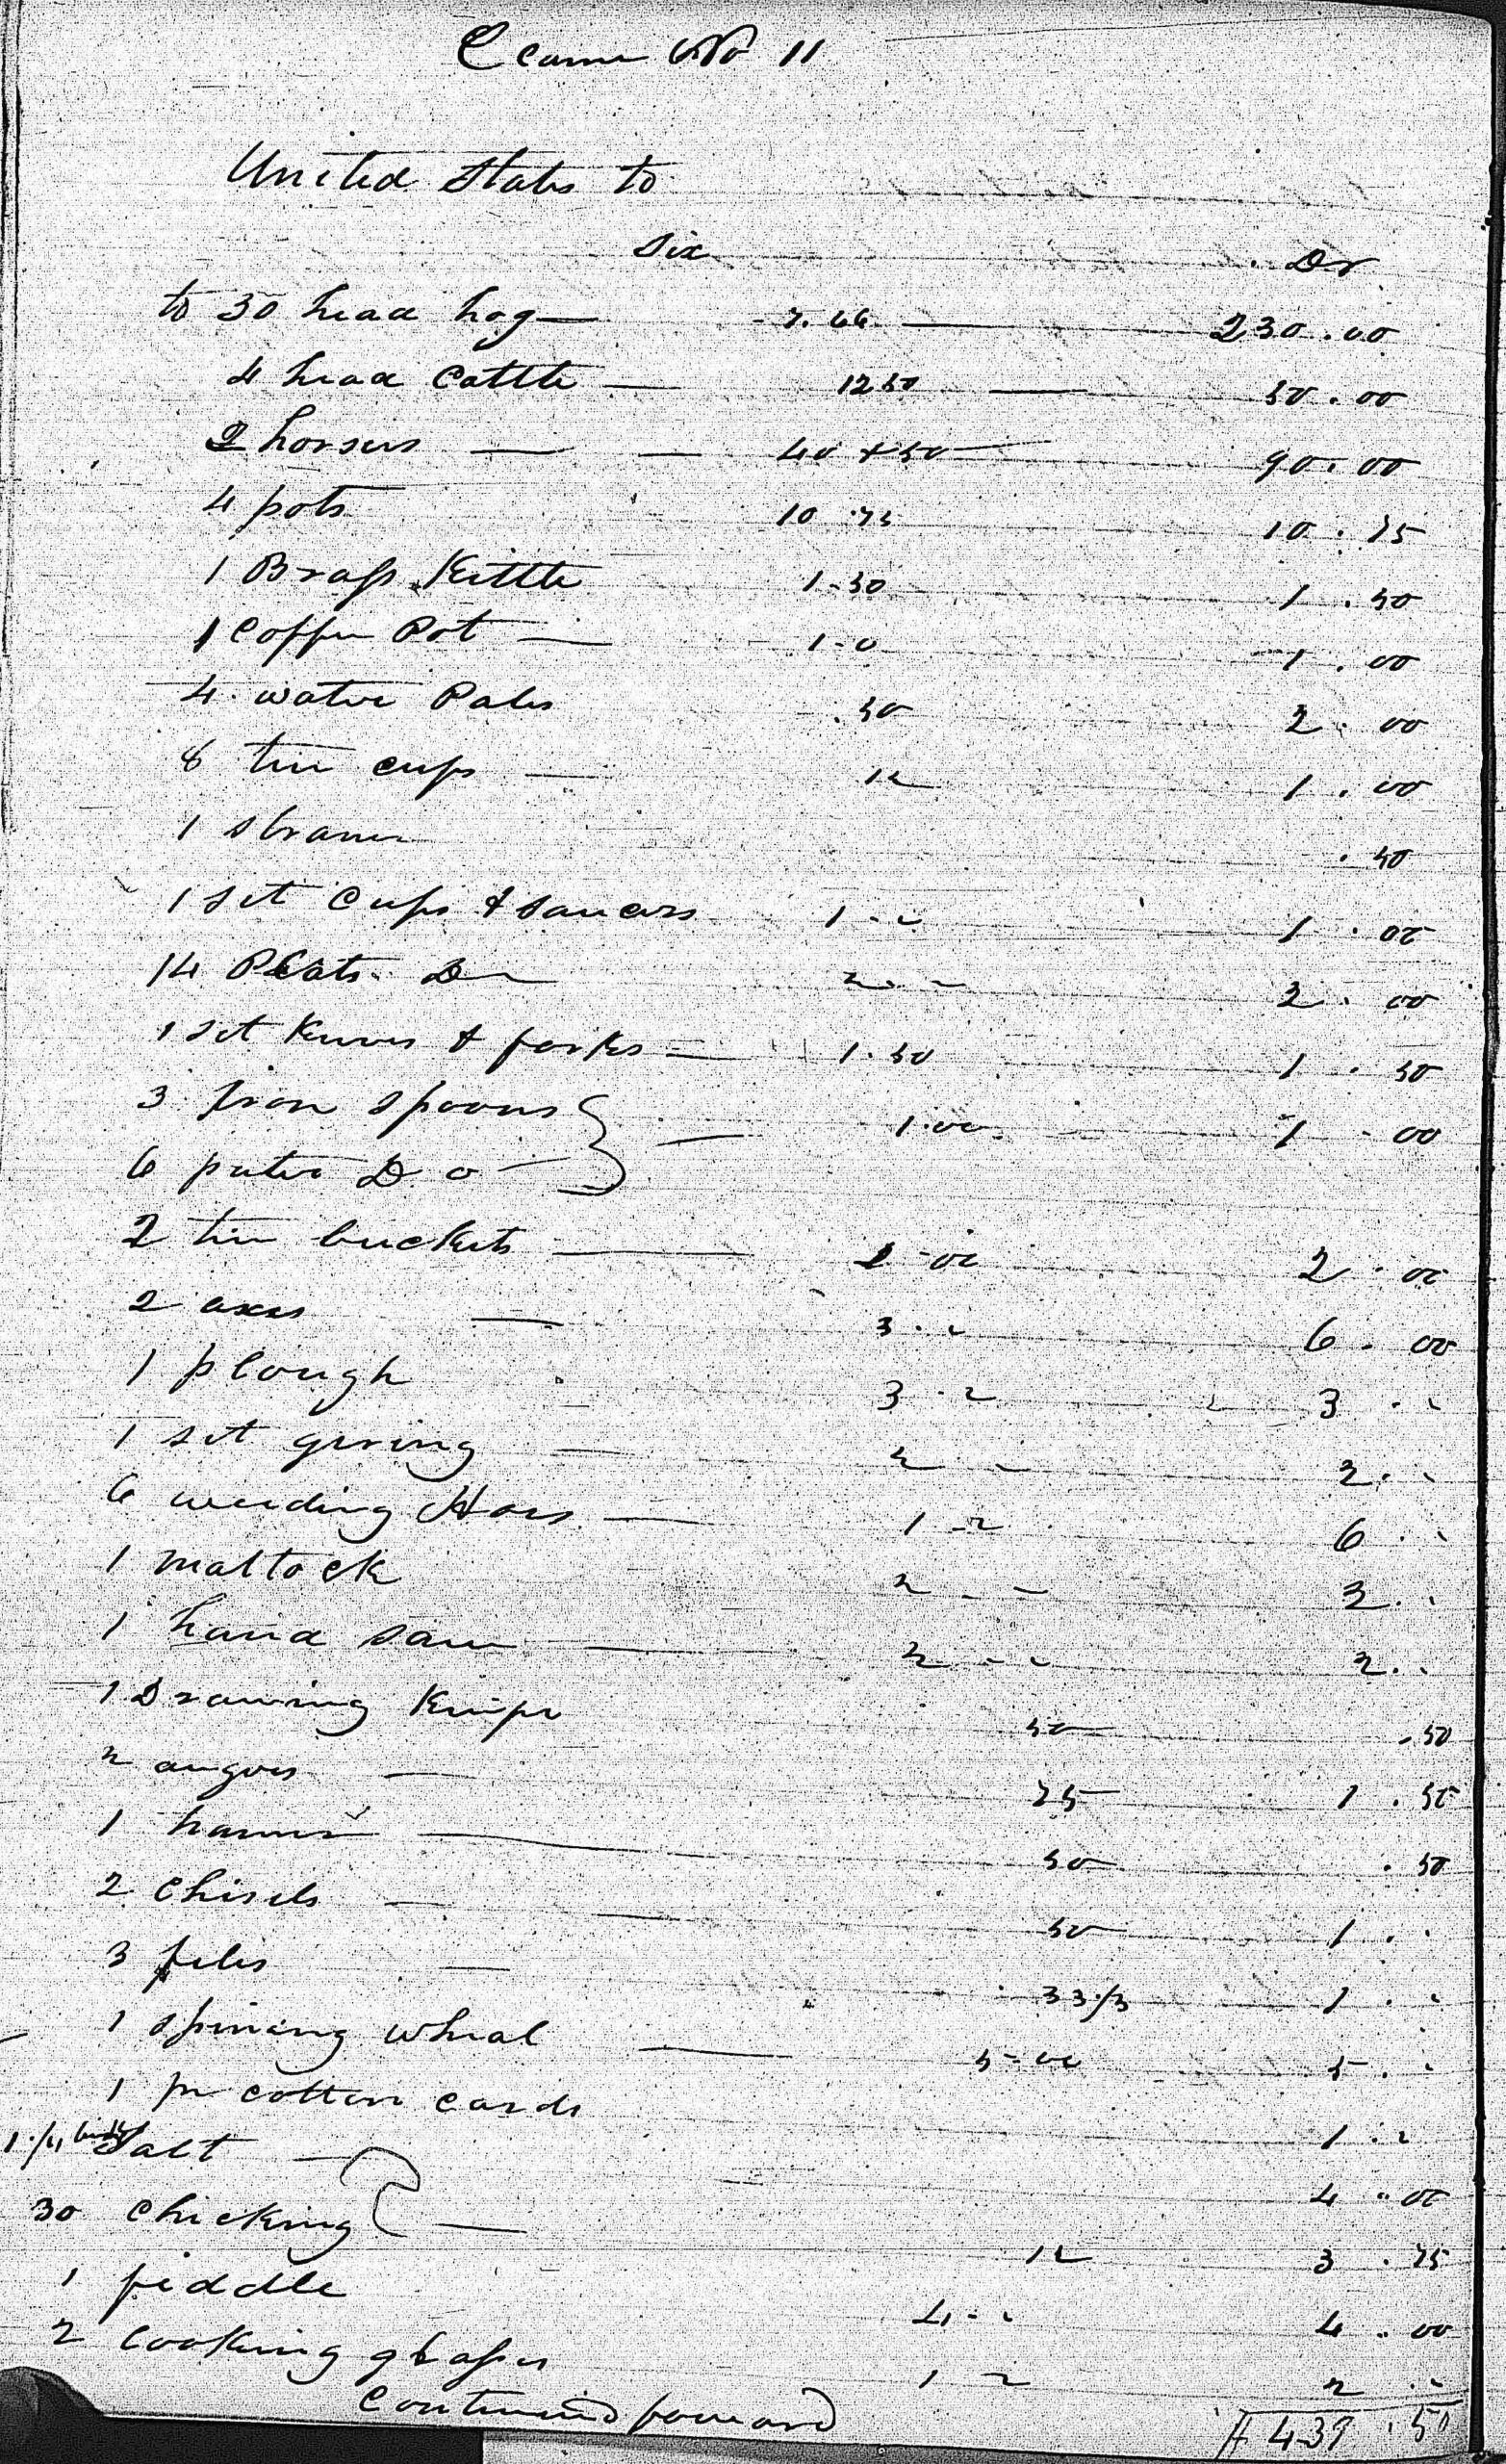 Claim No 11
United States to
Six Dr
to 30 head hog — 7.66 — 230.00
4 head Cattle — 12 50 — 50.00
2 horses — — 40 & 50 — 90.00
4 pots 10.75 10.75
1 Brass Kittle 1-50 1.50
1 Coffee Pot — 1-0 1.00
4 water Pales .50 2.00
8 tin cups — 12 1.00
1 straner .50
1 set Cups & saucers 1 - " 1.00
14 Plats Do 2 - " 2.00
1 set knives & forks — 1.50 1.50
3 Iron spoons } — 1.00 1-00
6 puter Do — }
2 tin buckets — 1-00 2.00
2 axes — 3 - " 6.00
1 plough 3 - " 3 . "
1 set gering — 2 - " 2 . "
6 weeding Hoes — 1 - " 6 . "
1 mattock 2 - " 2 . "
1 hand saw — 2 - " 2 . "
1 Drawing Knife 50 .50
2 augers — 75 1.50
1 hammer — 50 .50
2 Chisels — — 50 1 . "
3 files — 33 1/3 1 . "
1 spinang wheal — 5-00 5 . "
1 pr cotton cards 1 . "
1 1/4 bush Salt — 4.00
30 Chicking — 12 3.75
1 fiddle 4 - " 4.00
2 Looking glasses 1 " 2 . "
Continued forward # 439.50